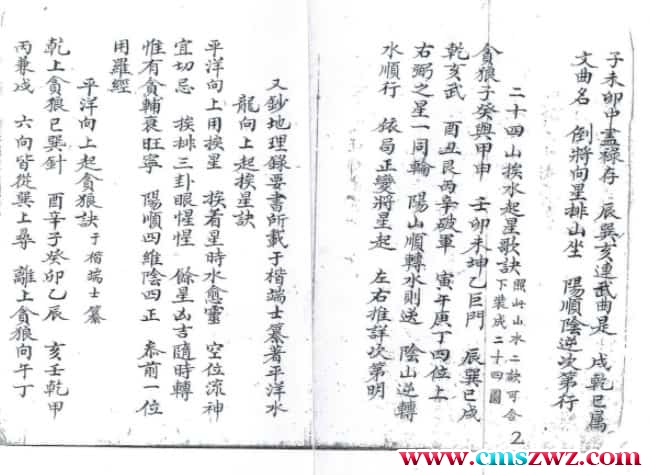 子未卯申盡祿存　辰巽亥連武曲是　戌乾巳屬
文曲名　倒將向星排山坐　陽順陰逆次第行
二十四山挨水起星歌訣　照此山水二訣可合下裝成二十四圖
貪狼子癸與甲申　壬卯未坤乙巨門　辰巽巳戌
乾亥武　酉丑艮丙辛破軍　寅午庚丁四位上
右弼之星一同輪　陽山順轉水則逆　陰山逆轉
水順行　依局正變將星起　左右推詳次第明
2
又鈔地理錄要書所載于楷端士纂著平洋水
龍向上起挨星訣
平洋向上用挨星　挨着星時水愈靈　空位流神
宜切忌　挨排三卦眼惺惺　餘星凶吉隨時轉
惟有貪輔衰旺寧　陽順四維陰四正　泰前一位
用羅經
平洋向上起貪狼訣　于楷端士纂
乾上貪狼巳巽針　酉辛子癸卯乙辰　亥壬乾甲
丙兼戌　六向皆從巽上尋　離上貪狼向午丁
www.cmszwz.com